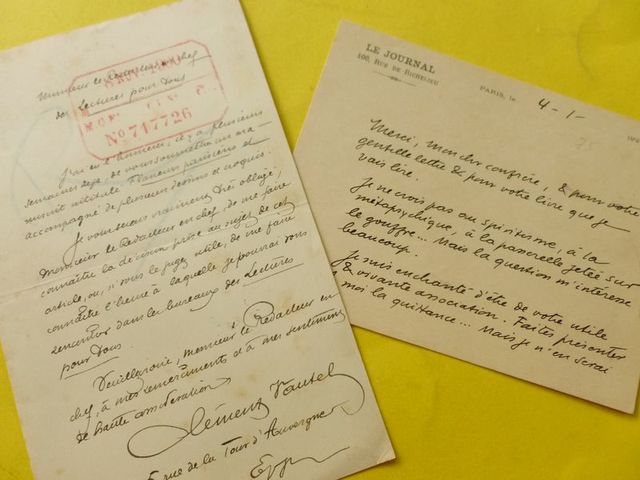 Monsieur le Rédacteur en chef
des Lectures pour Tous
No 717726
J'ai eu l'honneur, il y a plusieurs
semaines déjà, de vous soumettre un ma
nuscrit intitulé Flâneurs parisiens et
accompagné de plusieurs dessins et croquis.
Je vous serais vraiment très obligé,
Monsieur le Rédacteur en chef, de me faire
connaître la décision prise au sujet de cet
article, ou, si vous le jugez utile, de me faire
connaître l'heure à laquelle je pourrai vous
rencontrer dans les bureaux des Lectures
pour Tous
Veuillez croire, monsieur le Rédacteur en
chef, à mes remerciements et à mes sentiments
de haute considération
Clément Vautel
rue de la Tour d'Auvergne
LE JOURNAL
100, RUE DE RICHELIEU
PARIS, le 4-1-
192
75
Merci, mon cher confrère, & pour votre
gentille lettre & pour votre livre que je
vais lire.
Je ne crois pas au spiritisme, à la
métapsychique, à la passerelle jetée sur
le gouffre... Mais la question m'intéresse
beaucoup.
Je suis enchanté d'être de votre utile
& vivante association. Faites présenter
moi la quittance... Mais je n'en serai